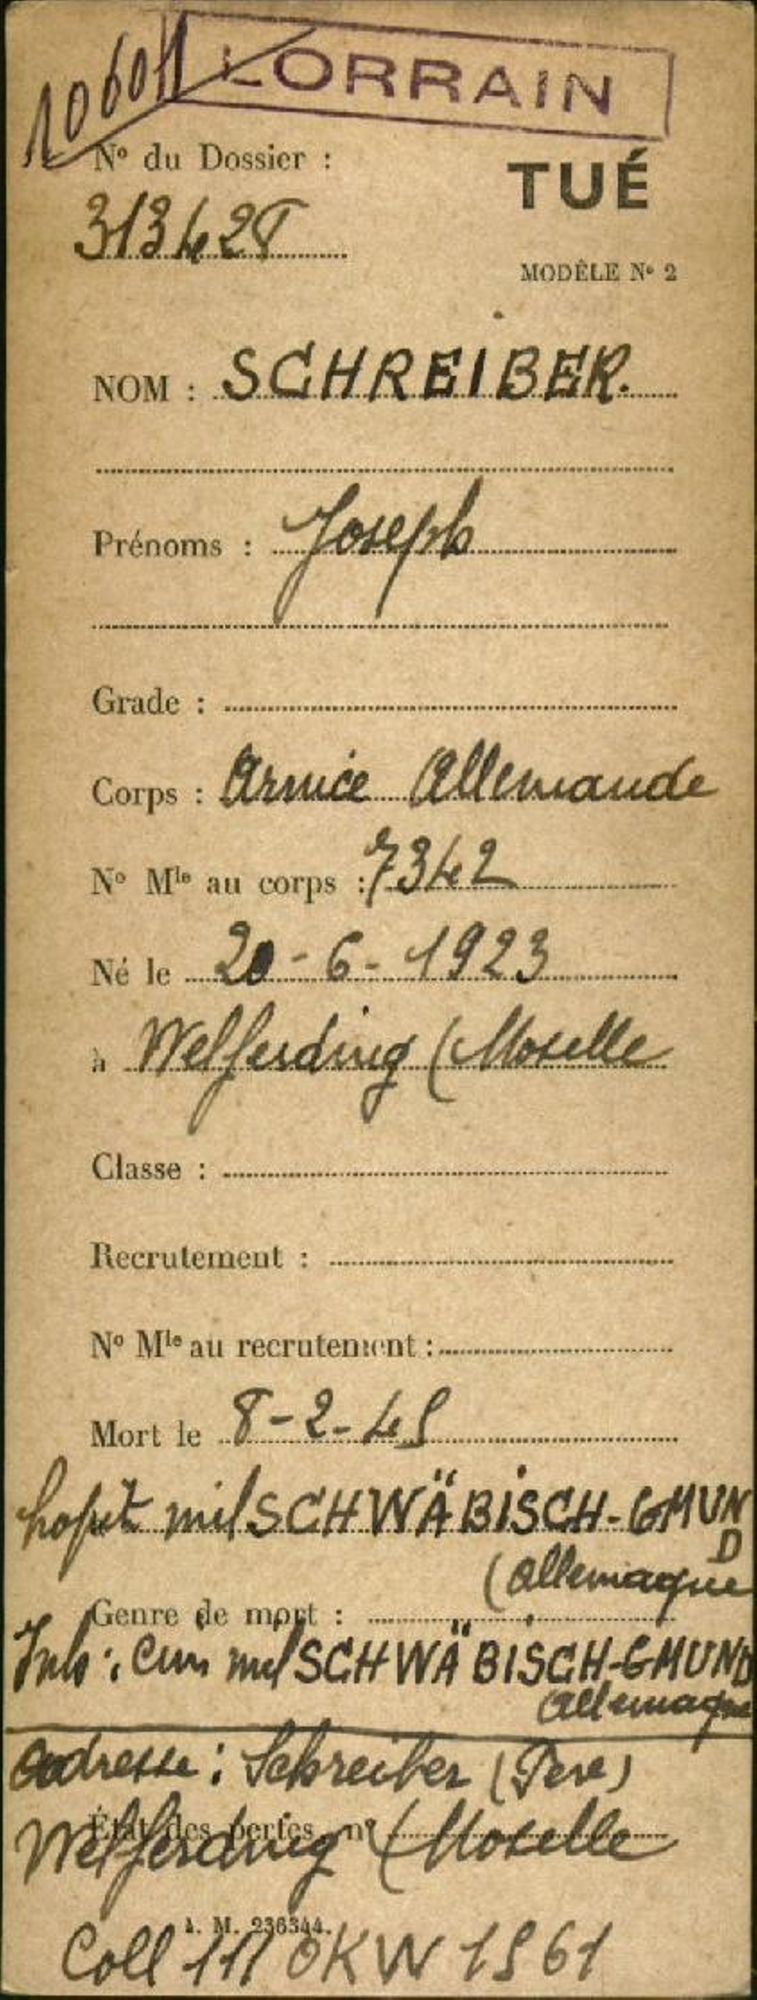 106011 LORRAIN
N° du Dossier :
TUÉ
313428
MODÈLE N° 2
NOM : SCHREIBER.
Prénoms : Joseph
Grade :
Corps : Armée Allemande
N° Mle au corps : 7342
Né le 20-6-1923
à Welferding (Moselle
Classe :
Recrutement :
N° Mle au recrutement :
Mort le 8-2-45
hopit mil SCHWÄBISCH-GMUN
D
(Allemagne
Genre de mort :
Inh : Cim mil SCHWÄBISCH-GMUND
Allemagne
Adresse : Schreiber (Père)
État des pertes n°
Welferding (Moselle
A. M. 236344.
Coll 111 OKW 1561